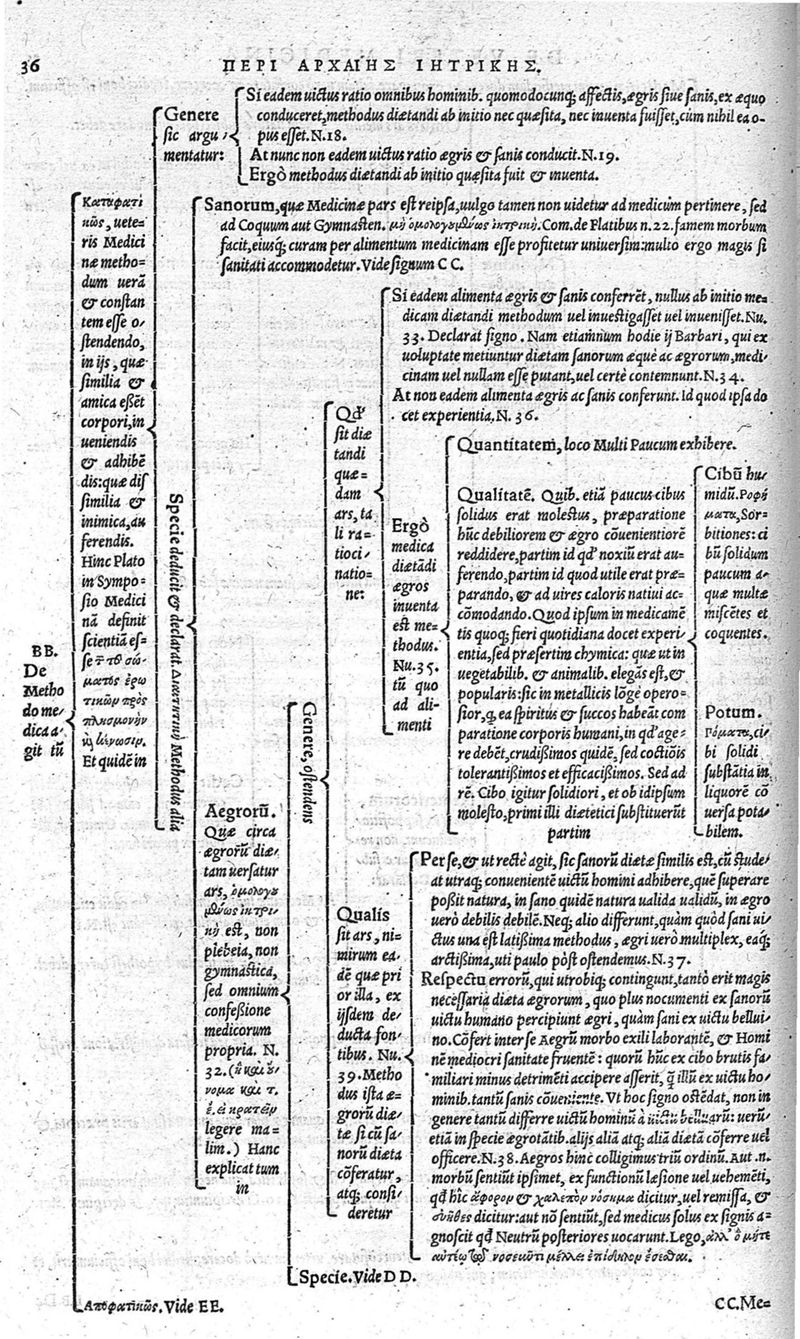 36
ΠΕΡΙ ΑΡΧΑΙΗΣ ΙΗΤΡΙΚΗΣ.
BB.
De
Metho
do me/
dica a/
git tū
Καταφατι
κῶς, uete=
ris Medici
næ metho=
dum uerā
& constan
tem esse o/
stendendo,
in ijs, quæ
similia &
amica eßēt
corpori, in
ueniendis
& adhibē
dis: quæ dis
similia &
inimica, au
ferendis.
Hinc Plato
in Sympo=
sio Medici
nā definit
scientiā es/
se τ τοῦ σώ-
ματος ἐρω
τικῶν πρὸς
πλησμονὴν
κὶ κένωσιν.
Et quidē in
Genere
sic argu/
mentatur:
Si eadem uictus ratio omnibus hominib. quomodocunq; affectis, ægris siue sanis, ex æquo
conduceret, methodus diætandi ab initio nec quæsita, nec inuenta fuisset, cùm nihil ea o-
pus esset. N.18.
At nunc non eadem uictus ratio ægris & sanis conducit. N.19.
Ergò methodus diætandi ab initio quæsita fuit & inuenta.
Specie deducit & declarat Διαιτητικὴ Methodus alia
Sanorum, quæ Medicinæ pars est reipsa, uulgo tamen non uidetur ad medicum pertinere, sed
ad Coquum aut Gymnasten. μὴ ὁμολογουμένως ἰητρικὴ. Com. de Flatibus n.22. famem morbum
facit, eiusq; curam per alimentum medicinam esse profitetur uniuersim: multo ergo magis si
sanitati accommodetur. Vide signum CC.
Aegrorū.
Quæ circa
ægrorū diæ/
tam uersatur
ars, ὁμολογου
μένως ἰητρι-
κή est, non
plebeia, non
gymnastica,
sed omnium
confeßione
medicorum
propria. N.
32. (
legere ma=
lim.) Hanc
explicat tum
in
Genere, ostendens
Qd'
sit diæ
tandi
quæ=
dam
ars, ta
li ra=
tioci/
natio=
ne:
Si eadem alimenta ægris & sanis conferrēt, nullus ab initio me=
dicam diætandi methodum uel inuestigasset uel inuenisset. Nu.
33. Declarat signo. Nam etiamnum hodie ij Barbari, qui ex
uoluptate metiuntur diætam sanorum æquè ac ægrorum, medi/
cinam uel nullam esse putant, uel certè contemnunt. N.34.
At non eadem alimenta ægris ac sanis conferunt. Id quod ipsa do
cet experientia, N.36.
Ergò
medica
diætādi
ægros
inuenta
est me/
thodus.
Nu.35.
tū quo
ad ali-
menti
Quantitatem, loco Multi Paucum exhibere.
Qualitatē. Quib. etiā paucus cibus
solidus erat molestus, præparatione
hūc debiliorem & ægro cōuenientiorē
reddidere, partim id qd' noxiū erat au-
ferendo, partim id quod utile erat præ-
parando, & ad uires caloris natiui ac-
cōmodando. Quod ipsum in medicamē
tis quoq; fieri quotidiana docet experi/
entia, sed præsertim chymica: quæ ut in
uegetabilib. & animalib. elegās est, &
popularis: sic in metallicis lōgè opero=
sior, q̃ ea spiritus & succos habeāt com
paratione corporis humani, in qd' age=
re debēt, crudißimos quidē, sed coctiōis
tolerantißimos et efficacißimos. Sed ad
rē. Cibo igitur solidiori, et ob idipsum
molesto, primi illi diætetici substituerūt
partim
Cibū hu/
midū. Ροφή
ματα, Sor-
bitiones: ci
bū solidum
paucum a-
quæ multæ
miscētes et
coquentes.
Potum.
Πόματα, ci/
bi solidi
substātia in
liquorē cō
uersa pota/
bilem.
Qualis
sit ars, ni/
mirum ea/
dē quæ pri
or illa, ex
ijsdem de/
ducta fon/
tibus. Nu.
39. Metho
dus ista æ-
grorū diæ/
tæ si cū sa/
norū diæta
cōferatur,
atq; consi/
deretur
Per se, & ut rectè agit, sic sanorū diætæ similis est, cū stude/
at utraq; conuenientē uictū homini adhibere, quē superare
poßit natura, in sano quidē natura ualida ualidū, in ægro
uerò debilis debilē. Neq; alio differunt, quàm quòd sani ui/
ctus una est latißima methodus, ægri uerò multiplex, eaq;
arctißima, uti paulo pòst ostendemus. N.37.
Respectu errorū, qui utrobiq; contingunt, tantò erit magis
necessaria diæta ægrorum, quo plus nocumenti ex sanorū
uictu humano percipiunt ægri, quàm sani ex uictu bellui/
no. Cōfert inter se Aegrū morbo exili laborantē, & Homi
nē mediocri sanitate fruentē: quorū hūc ex cibo brutis fa/
miliari minus detrimēti accipere asserit, q̃ illū ex uictu ho/
minib. tantū sanis cōueniente. Vt hoc signo ostēdat, non in
genere tantū differre uictū hominū à uictu belluarū: uerū
etiā in specie ægrotātib. alijs aliā atq; aliā diætā cōferre uel
officere. N.38. Aegros hinc colligimus triū ordinū. Aut .n.
morbū sentiūt ipsimet, ex functionū læsione uel uehemēti,
qd' hîc ἄφορον & χαλεπὸν νόσημα dicitur, uel remissa, &
σύνηθες dicitur: aut nō sentiūt, sed medicus solus ex signis a=
gnoscit qd' Neutrū posteriores uocarunt. Lego,
νοσεκότι μέλλει ἐπίδηλον ἔσεσθαι.
Specie. Vide DD.
Αποφατικῶς. Vide EE.
CC. Me=